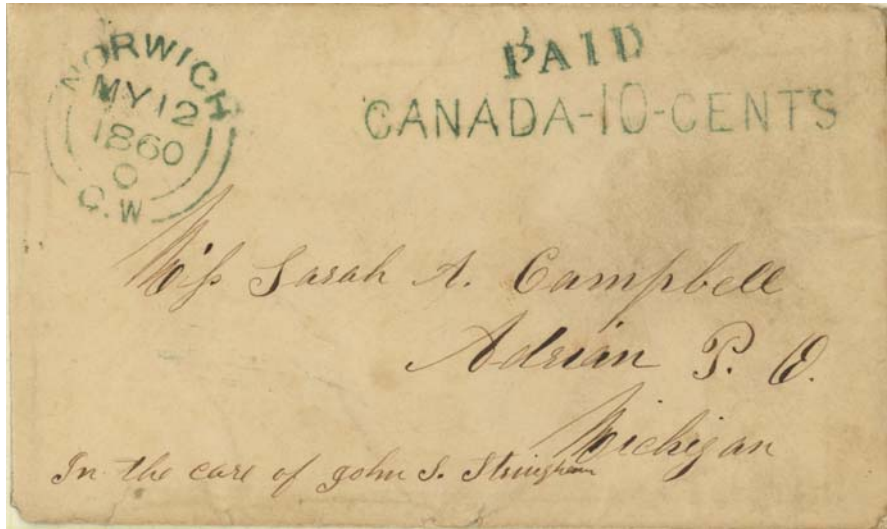 NORWICH
MY 12
1860
C.W
PAID
CANADA-10-CENTS
Miss Sarah A. Campbell
Adrian P. O.
Michigan
In the care of John S. Stringham